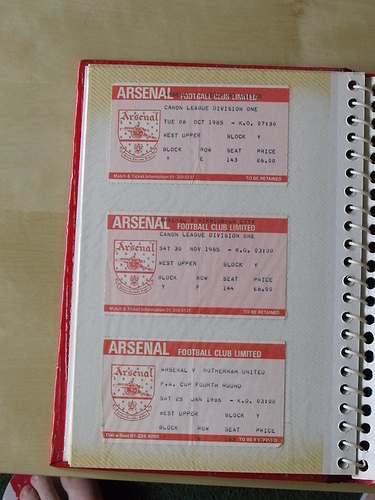 ARSENAL FOOTBALL CLUB LIMITED
CANON LEAGUE DIVISION ONE
Arsenal
TUE 08 OCT 1985 - K.O. 07:30
WEST UPPER BLOCK Y
BLOCK ROW SEAT PRICE
Y E 143 £6.00
Match & Ticket Information 01-359 0131 TO BE RETAINED
ARSENAL V BIRMINGHAM CITY
ARSENAL FOOTBALL CLUB LIMITED
CANON LEAGUE DIVISION ONE
Arsenal
SAT 30 NOV 1985 - K.O. 03:00
WEST UPPER BLOCK Y
BLOCK ROW SEAT PRICE
Y F 144 £6.00
Match & Ticket Information 01-359 0131 TO BE RETAINED
ARSENAL FOOTBALL CLUB LIMITED
Arsenal
ARSENAL V ROTHERHAM UNITED
F.A. CUP FOURTH ROUND
SAT 25 JAN 1986 - K.O. 03:00
WEST UPPER BLOCK Y
BLOCK ROW SEAT PRICE
Dial-a-Seat 01-226 4050 TO BE RETAINED